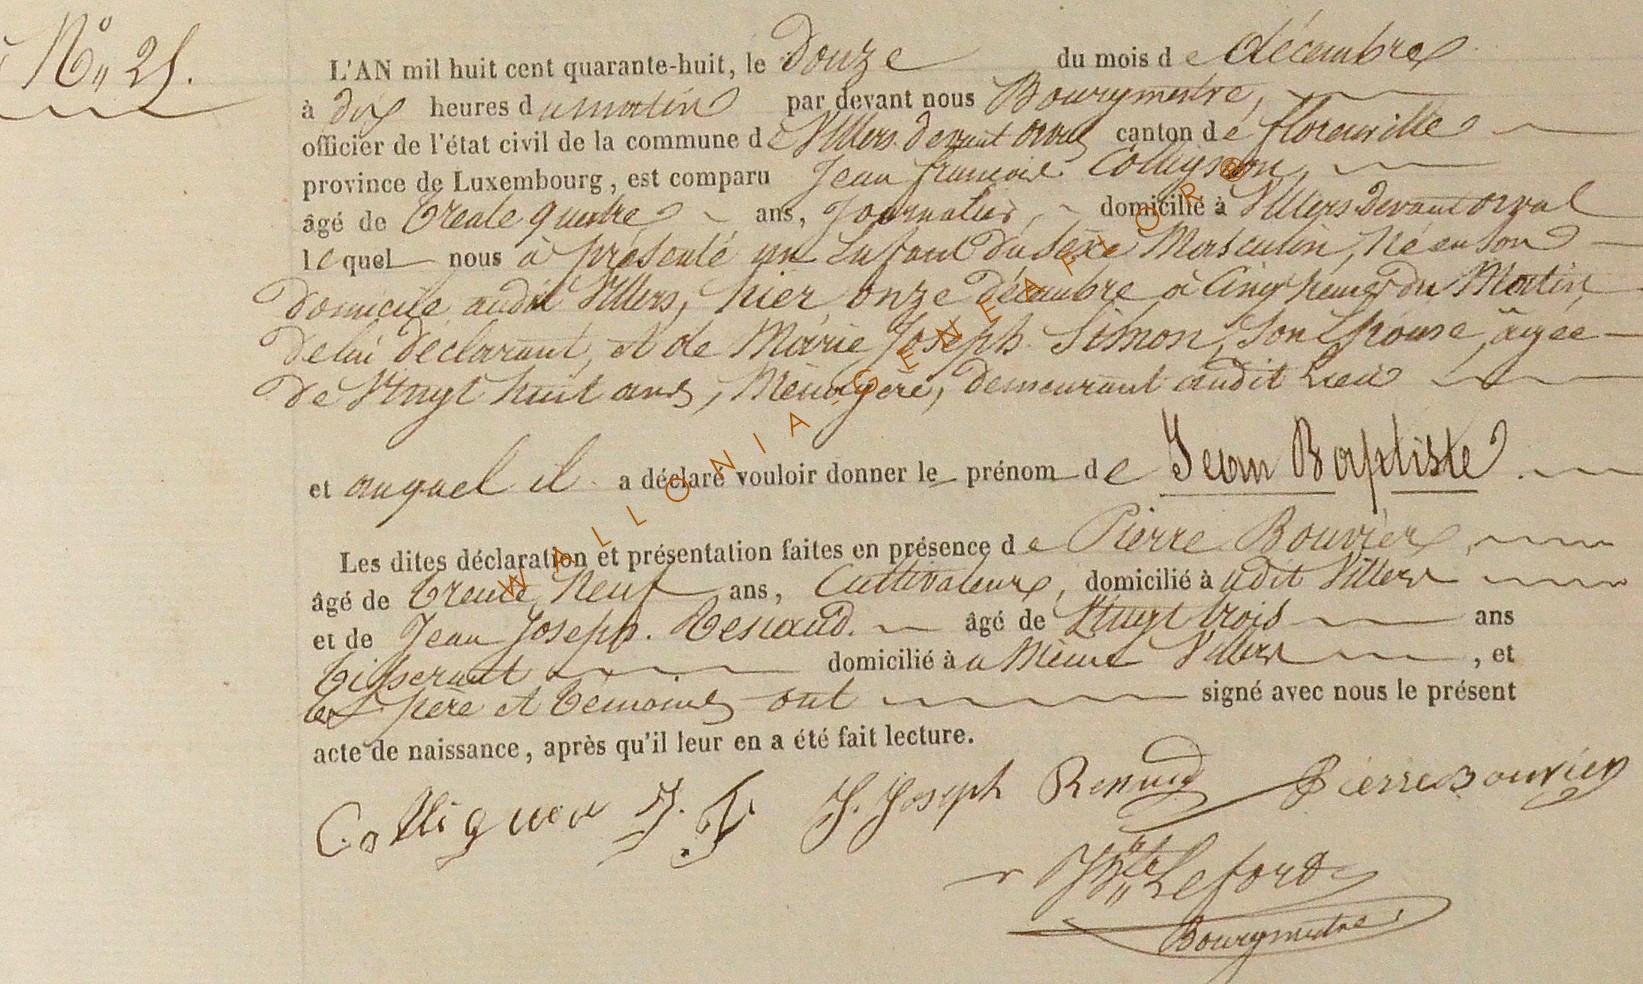 N° 25.
L'AN mil huit cent quarante-huit, le Douze du mois de décembre
à dix heures du matin par devant nous Bourgmestre,
officier de l'état civil de la commune de Villers devant orval canton de florenville
province de Luxembourg, est comparu Jean françois Collignon,
âgé de trente quatre ans, Journalier, domicilié à Villers devant orval
lequel nous à présenté un Enfant du sexe Masculin, Né en son
domicile audit Villers, hier onze décembre à Cinq heures du Matin,
de lui déclarant, et de Marie Joseph Simon, Son Epouse, âgée
de Vingt huit ans, Ménagère, demeurant audit Lieu
et auquel il a déclaré vouloir donner le prénom de Jean Baptiste.
Les dites déclaration et présentation faites en présence de Pierre Bouvier,
âgé de trente Neuf ans, Cultivateur, domicilié à udit Villers
et de Jean Joseph. Renaud. âgé de Vingt trois ans
tisserant domicilié à u Même Villers, et
les père et témoins ont signé avec nous le présent
acte de naissance, après qu'il leur en a été fait lecture.
Collignon J. f. J. Joseph Renaud Pierre Bouvier
J Bte Lefort
Bourgmestre
WALLONIA-GENEAFIOR@